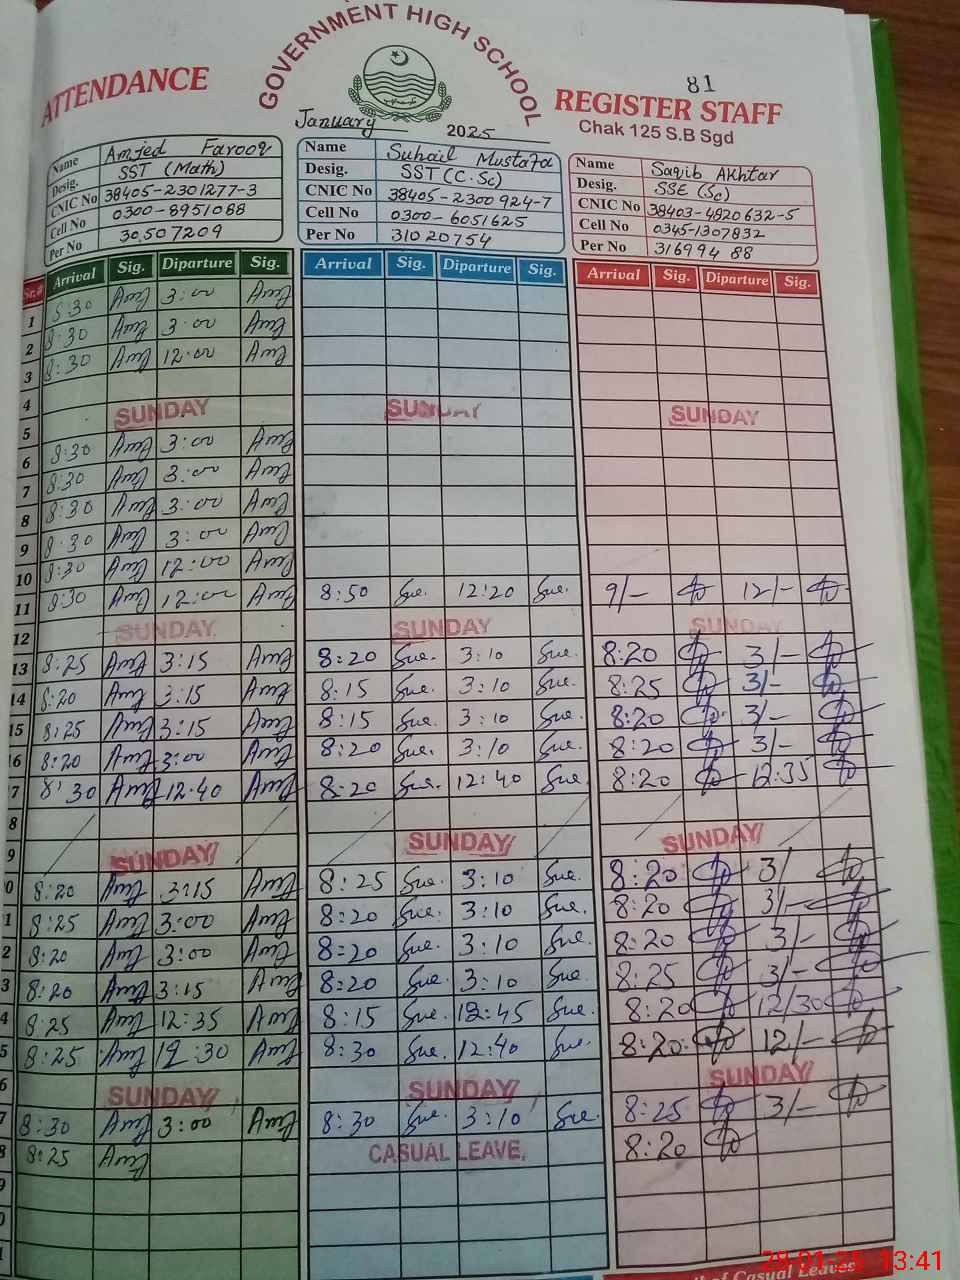 GOVERNMENT HIGH SCHOOL
ATTENDANCE
REGISTER STAFF
81
January 2025
Chak 125 S.B Sgd
Name Amjed Farooq
Desig. SST (Math)
CNIC No 38405-2301277-3
Cell No 0300-8951088
Per No 30507209
Name Suhail Mustafa
Desig. SST (C.Sc)
CNIC No 38405-2300924-7
Cell No 0300-6051625
Per No 31020754
Name Saqib Akhtar
Desig. SSE (Sc)
CNIC No 38403-4820632-5
Cell No 0345-1307832
Per No 31699488
Sr.# Arrival Sig. Diparture Sig. Arrival Sig. Diparture Sig. Arrival Sig. Diparture Sig.
1 8:30 3:00
2 8:30 3:00
3 8:30 12:00
4
5 SUNDAY SUNDAY SUNDAY
6 8:30 3:00
7 8:30 3:00
8 8:30 3:00
9 8:30 3:00
10 8:30 12:00
11 8:30 12:00 8:50 Sue. 12:20 Sue. 9/- 12/-
12 SUNDAY SUNDAY SUNDAY
13 8:25 3:15 8:20 Sue. 3:10 Sue. 8:20 3/-
14 8:20 3:15 8:15 Sue. 3:10 Sue. 8:25 3/-
15 8:25 3:15 8:15 Sue. 3:10 Sue. 8:20 3/-
16 8:20 3:00 8:20 Sue. 3:10 Sue. 8:20 3/-
7 8:30 12:40 8:20 Sue. 12:40 Sue. 8:20 12:35
8
9 SUNDAY SUNDAY SUNDAY
0 8:20 3:15 8:25 Sue. 3:10 Sue. 8:20 3/
1 8:25 3:00 8:20 Sue. 3:10 Sue. 8:20 3/-
2 8:20 3:00 8:20 Sue. 3:10 Sue. 8:20 3/-
3 8:20 3:15 8:20 Sue. 3:10 Sue. 8:25 3/-
4 8:25 12:35 8:15 Sue. 12:45 Sue. 8:20 12/30
5 8:25 12:30 8:30 Sue. 12:40 Sue. 8:20 12/-
6 SUNDAY SUNDAY SUNDAY
7 8:30 3:00 8:30 Sue. 3:10 Sue. 8:25 3/-
8 8:25 CASUAL LEAVE. 8:20
9
0
1
of Casual Leaves
28-01-25 13:41